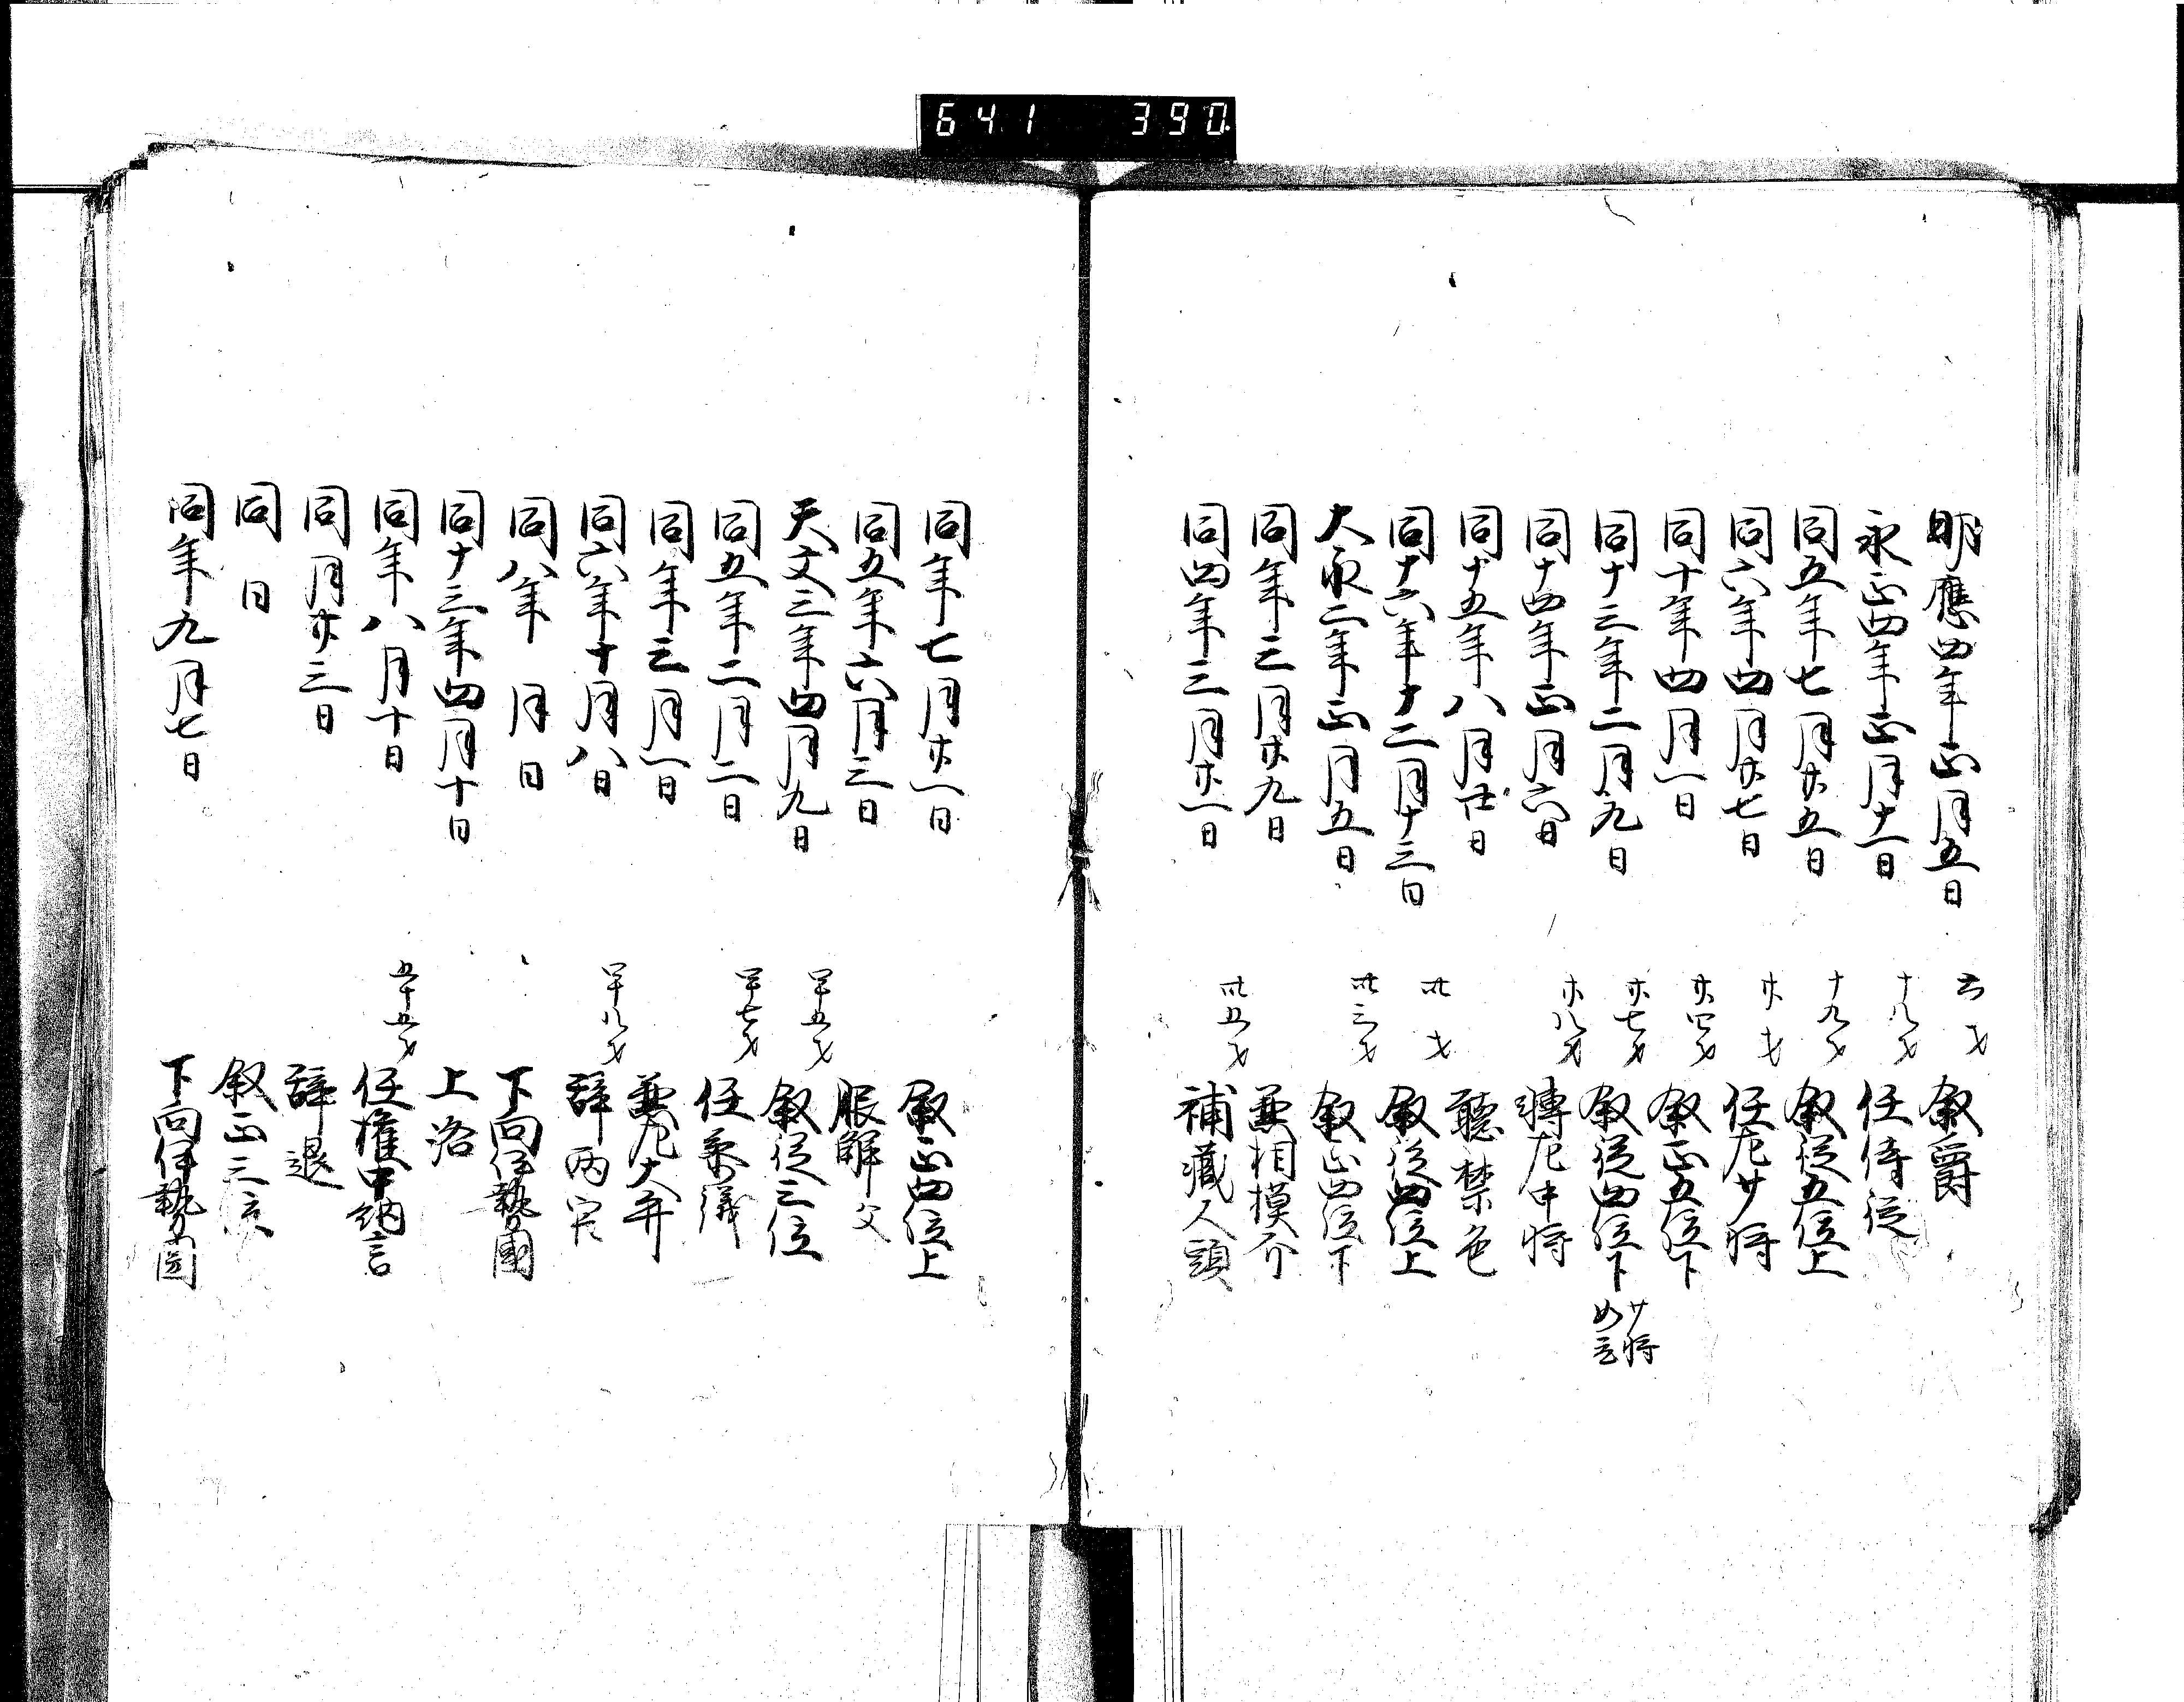 641 390
明應四年正月五日 六才 叙爵
永正四年正月十一日 十八才 任侍従
同五年七月廿五日 十九才 叙従五位上
同六年四月廿七日 廿才 任左少将
同十年四月一日 廿四才 叙正五位下
同十三年二月九日 廿七才 叙従四位下 少将如元
同十四年正月六日 廿八才 轉左中将
同十五年八月廿日 聴禁色
同十六年十二月十三日 卅才 叙従四位上
大永二年正月五日 卅三才 叙正四位下
同年三月廿九日 兼相模介
同四年三月廿一日 卅五才 補蔵人頭
同年七月廿一日 叙正四位上
同五年六月三日 服解父
天文三年四月九日 四十五才 叙従三位
同五年二月二日 四十七才 任参議
同年三月一日 兼左大弁
同六年十月八日 四十八才 辞両官
同八年 月 日 下向伊勢國
同十三年四月十日 上洛
同年八月十日 五十五才 任権中納言
同月廿三日 辞退
同日 叙正三位
同年九月七日 下向伊勢国